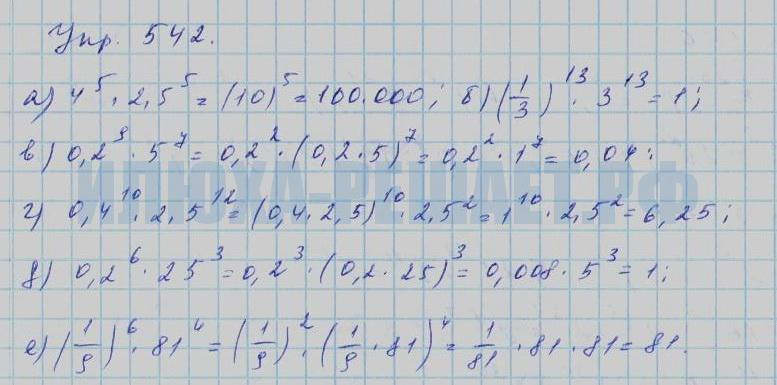 Упр. 542.
а) 4⁵ · 2,5⁵ = (10)⁵ = 100.000; б) (1/3)¹³ · 3¹³ = 1;
в) 0,2⁹ · 5⁷ = 0,2² · (0,2 · 5)⁷ = 0,2² · 1⁷ = 0,04;
г) 0,4¹⁰ · 2,5¹² = (0,4 · 2,5)¹⁰ · 2,5² = 1¹⁰ · 2,5² = 6,25;
д) 0,2⁶ · 25³ = 0,2³ · (0,2 · 25)³ = 0,008 · 5³ = 1;
е) (1/9)⁶ · 81⁴ = (1/9)² · (1/9 · 81)⁴ = 1/81 · 81 · 81 = 81.
ИЛЮХА-РЕШАЕТ.РФ